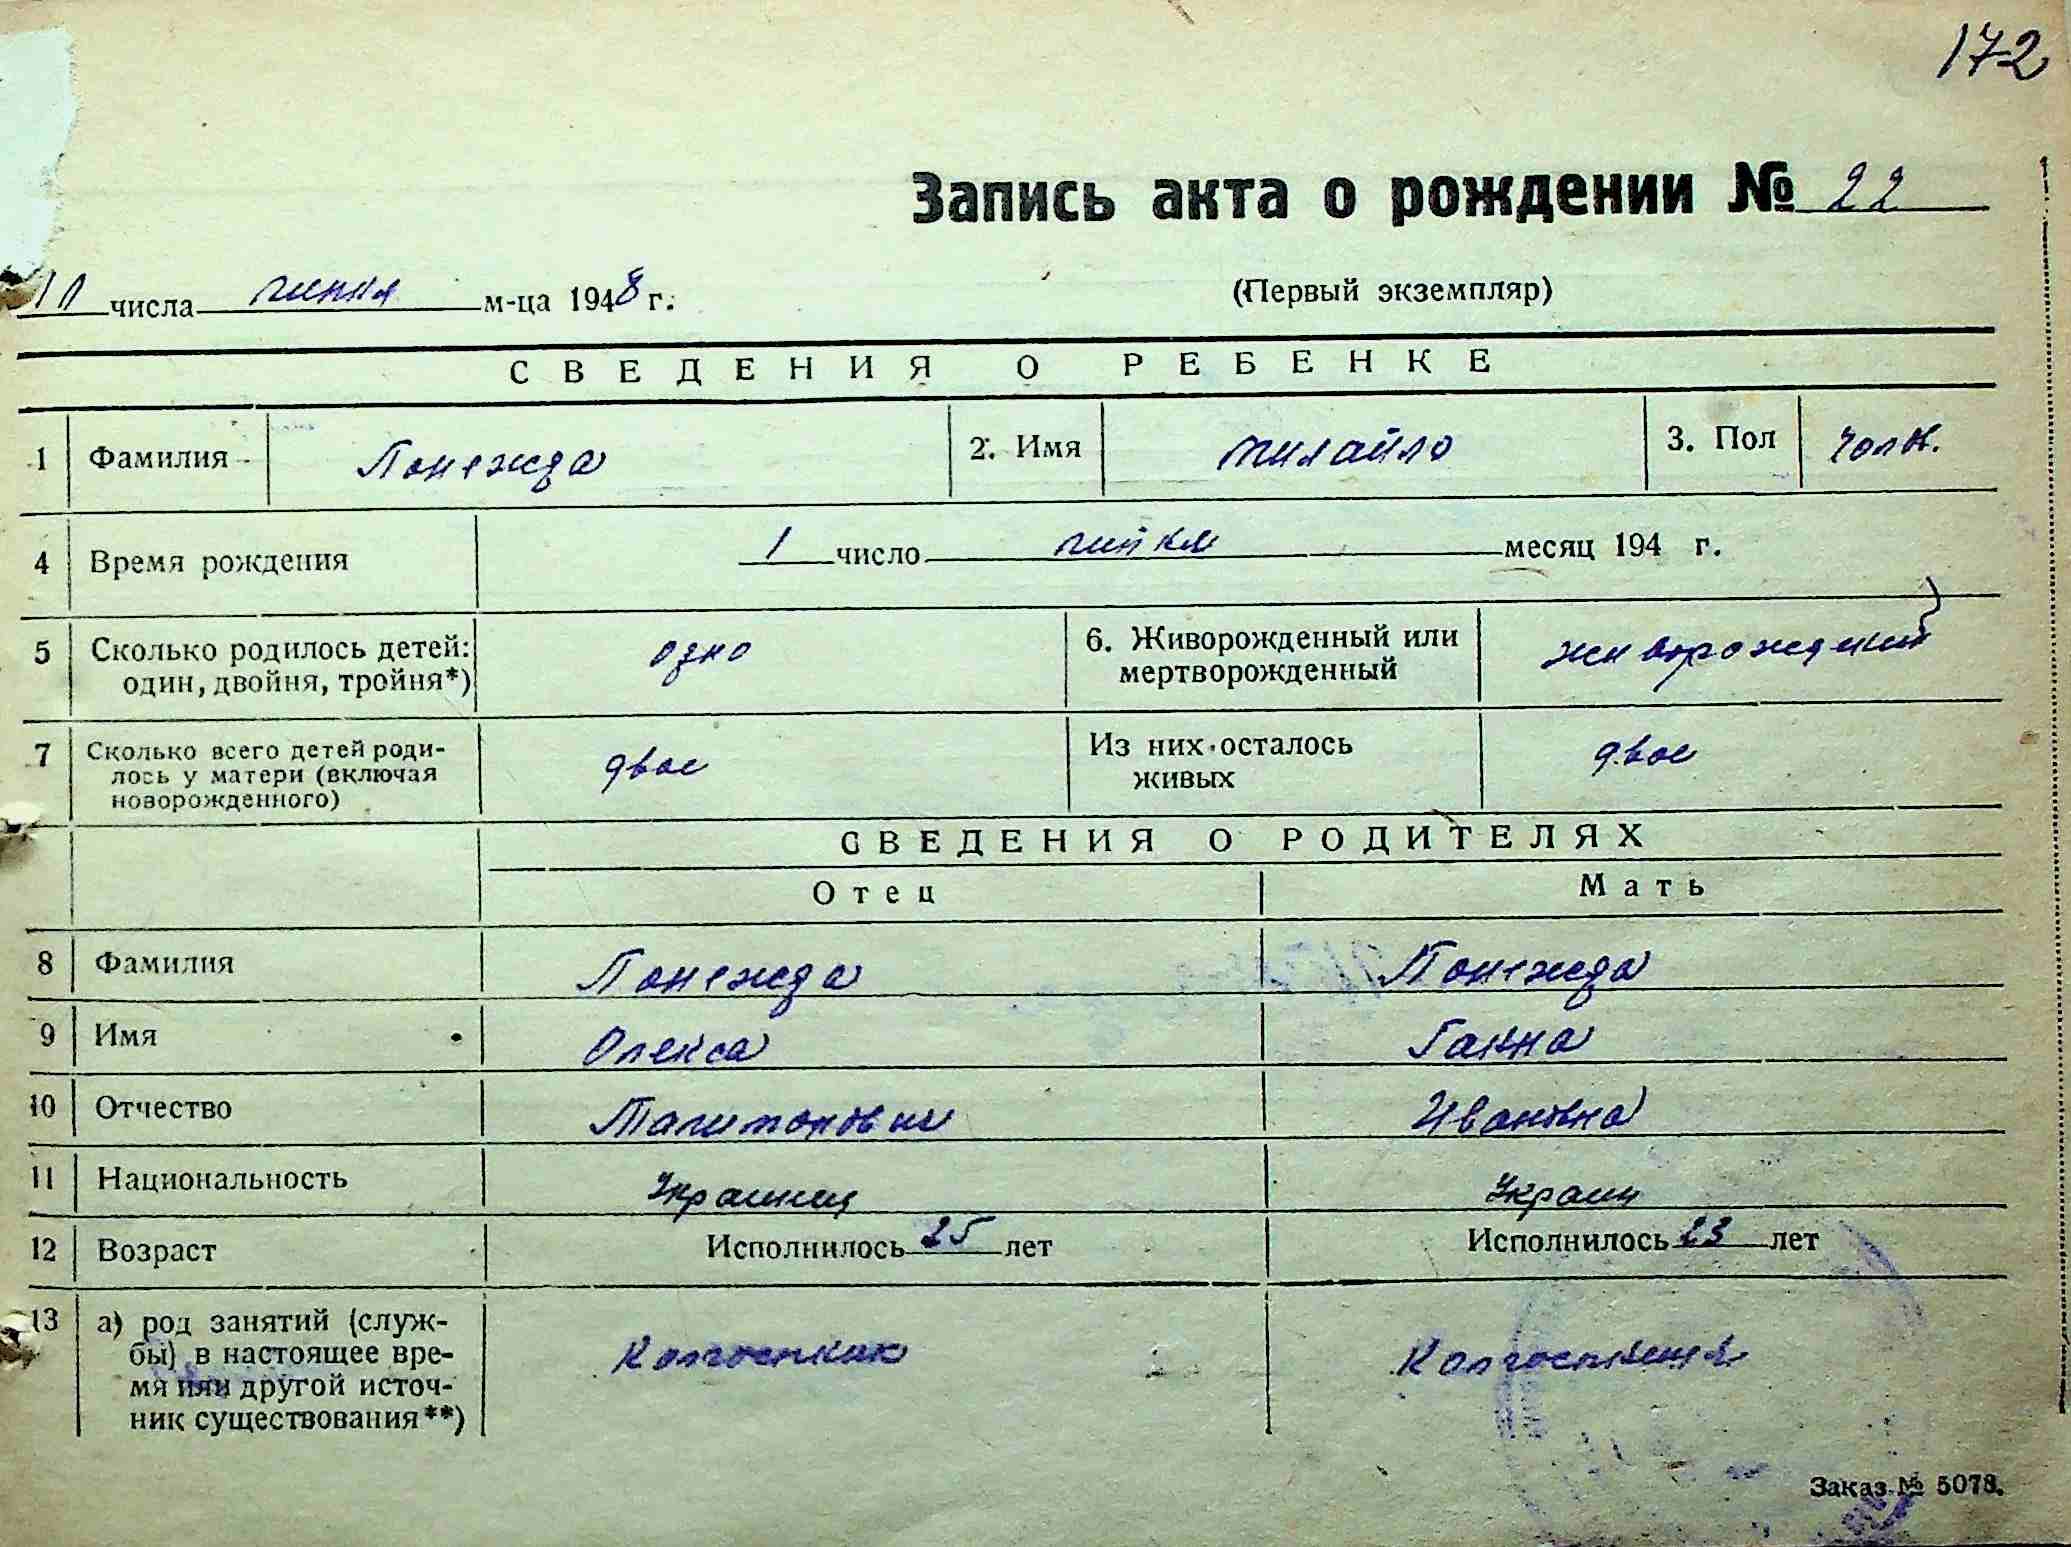 172
Запись акта о рождении № 22
11 числа липня м-ца 1948 г.
(Первый экземпляр)
СВЕДЕНИЯ О РЕБЕНКЕ
1 Фамилия Понежда 2. Имя Михайло 3. Пол чолк.
4 Время рождения 1 число липня месяц 194 г.
5 Сколько родилось детей: один, двойня, тройня*) одно 6. Живорожденный или мертворожденный
7 Сколько всего детей родилось у матери (включая новорожденного) двое Из них осталось живых двое
СВЕДЕНИЯ О РОДИТЕЛЯХ
Отец Мать
8 Фамилия Понежда Понежда
9 Имя Олекса Ганна
10 Отчество Ивановна
11 Национальность Украинец Украин
12 Возраст Исполнилось 25 лет Исполнилось 23 лет
13 а) род занятий (службы) в настоящее время или другой источник существования**) Колгоспник Колгоспниця
Заказ № 5078.